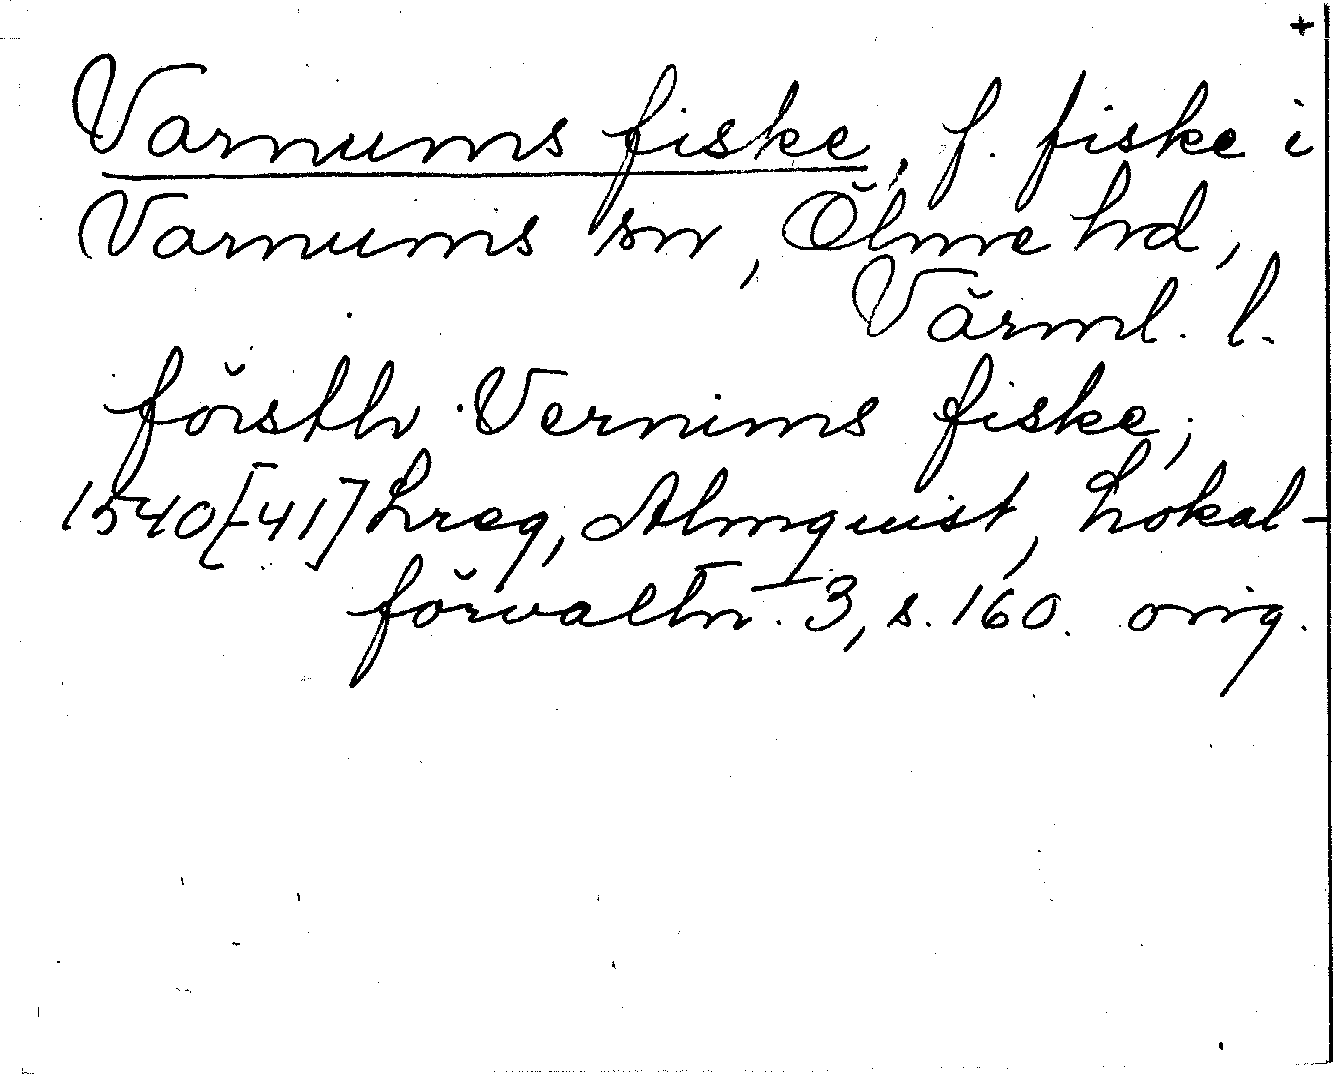 +
Varnums fiske, f. fiske i
Varnums sn, Ölme hd,
Värml. l.
försth Vernims fiske,
1540[-41] Lreg, Almquist, Lokal-
förvaltn. I 3, s. 160. orig.